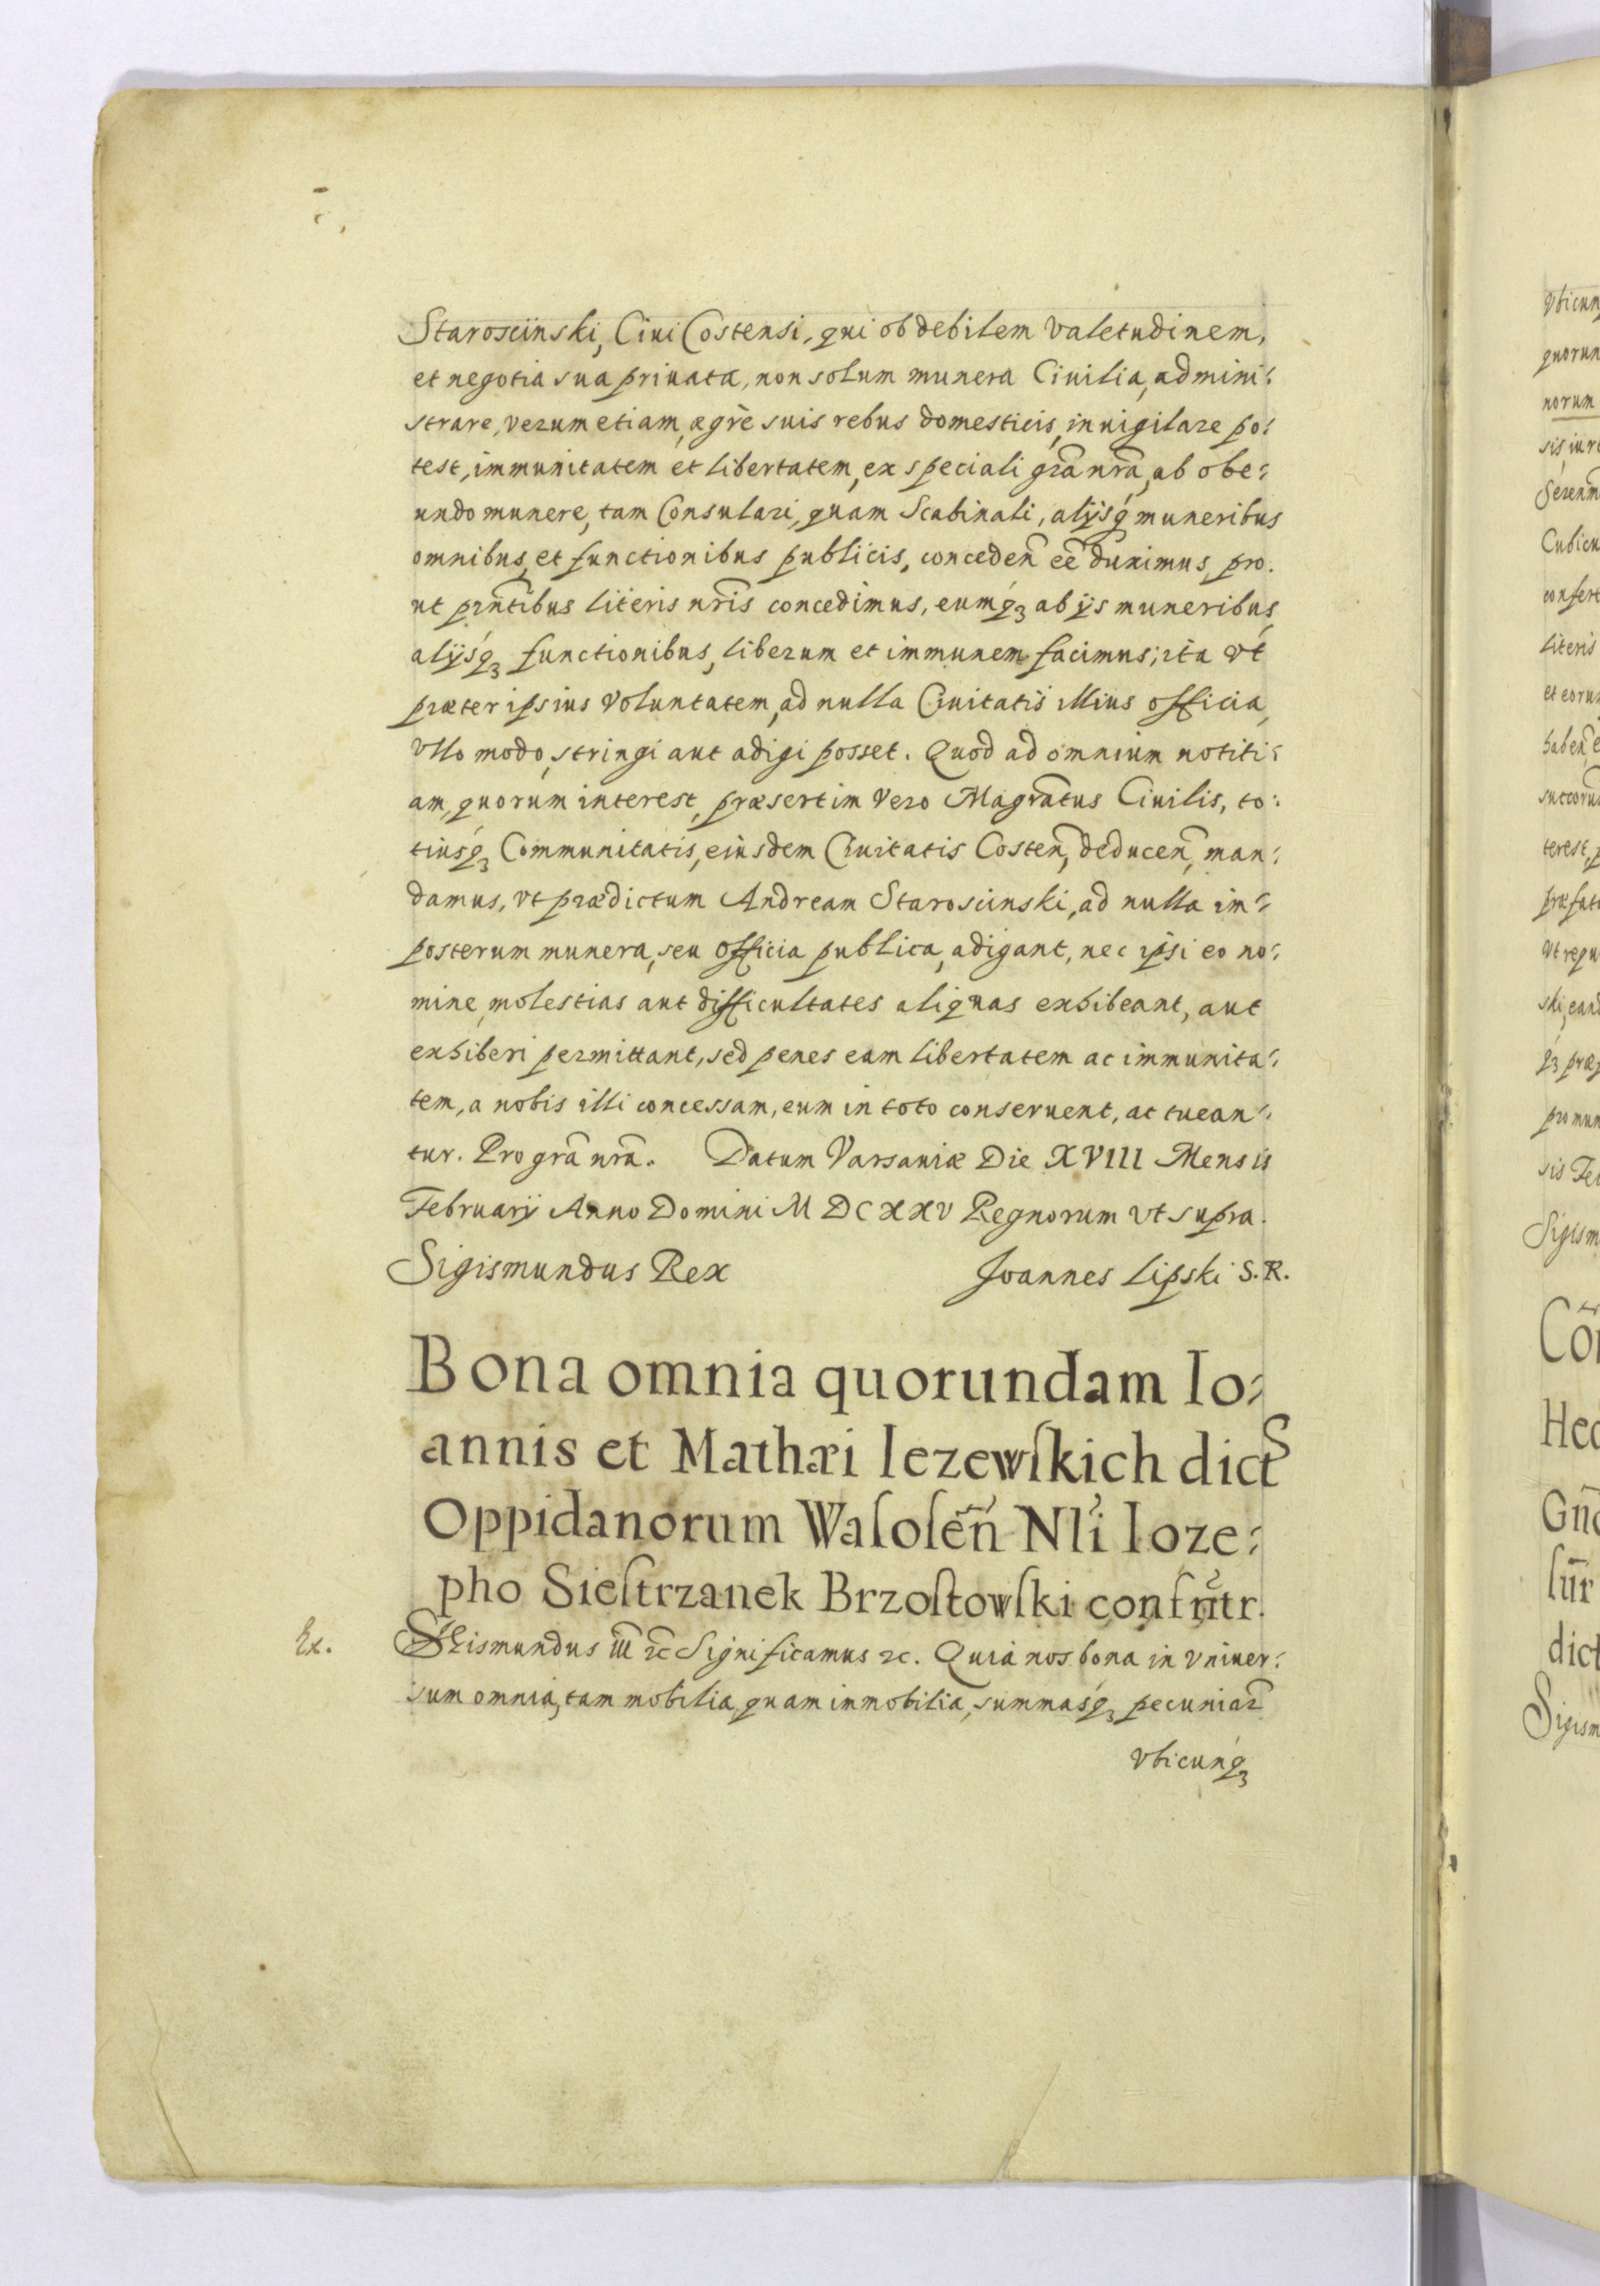 Starosciinski, Ciui Costensi, qui ob debilem valetudinem,
et negotia sua priuata, non solum munera Ciuilia, admini:
strare, verum etiam, ægrè suis rebus domesticis, inuigilare po:
test, immunitatem et libertatem, ex speciali gr̃a nr̃a, ab obe:
undo munere, tam Consulari, quam Scabinali, alijsq́ muneribus
omnibus, et functionibus publicis, conceden̄ eē duximus, pro.
ut pr̃ntibus literis nr̃is concedimus, eumq́ꝫ ab ijs muneribus
alijsq́ꝫ functionibus, liberum et immunem facimus; ita vt
præter ipsius voluntatem, ad nulla Ciuitatis illius officia,
vllo modo, stringi aut adigi posset. Quod ad omnium notiti:
am, quorum interest, præsertim vero Magrãtus Ciuilis, to:
tiusq́ꝫ Communitatis, eiusdem Ciuitatis Costen̄, deducen̄, man:
damus, vt prædictum Andream Starosciinski, ad nulla im:
posterum munera, seu officia publica, adigant, nec ipsi eo no:
mine, molestias aut difficultates aliquas exhibeant, aut
exhiberi permittant, sed penes eam libertatem ac immunita:
tem, a nobis illi concessam, eum in toto conseruent, ac tuean:
tur. Pro gr̃a nr̃a. Datum Varsauiæ Die XVIII Mensis
Februarij Anno Domini MDCXXV Regnorum vt supra.
Sigismundus Rex Joannes Lipski S.R.
Bona omnia quorundam Io:
annis et Mathæi Iezewſkich dictS
Oppidanorum Waſoſen̄ Nli Ioze:
pho Sieſtrzanek Brzoſtowſki conſrũtr.
Ex. Sigismundus III ꝛc Significamus ꝛc. Quia nos bona in vniuer:
sum omnia, tam mobilia quam inmobilia, summasq́ꝫ pecuniar̃
vbicunq́ꝫ